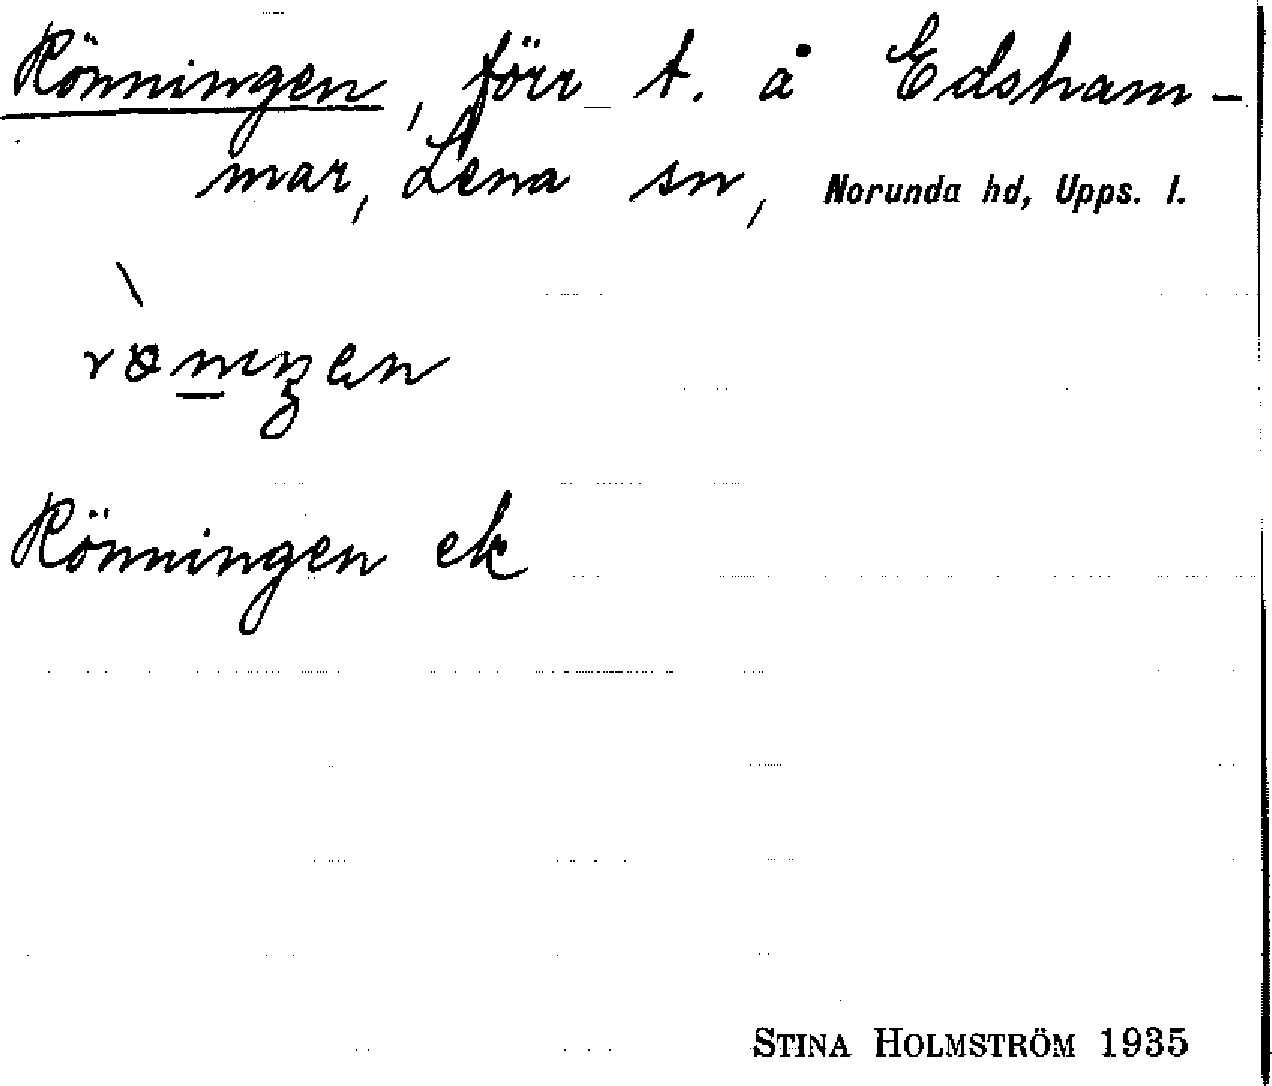 Rönningen, förr t. å Edsham-
mar, Lena sn, Norunda hd, Upps. l.
Rönningen ek
STINA HOLMSTRÖM 1935